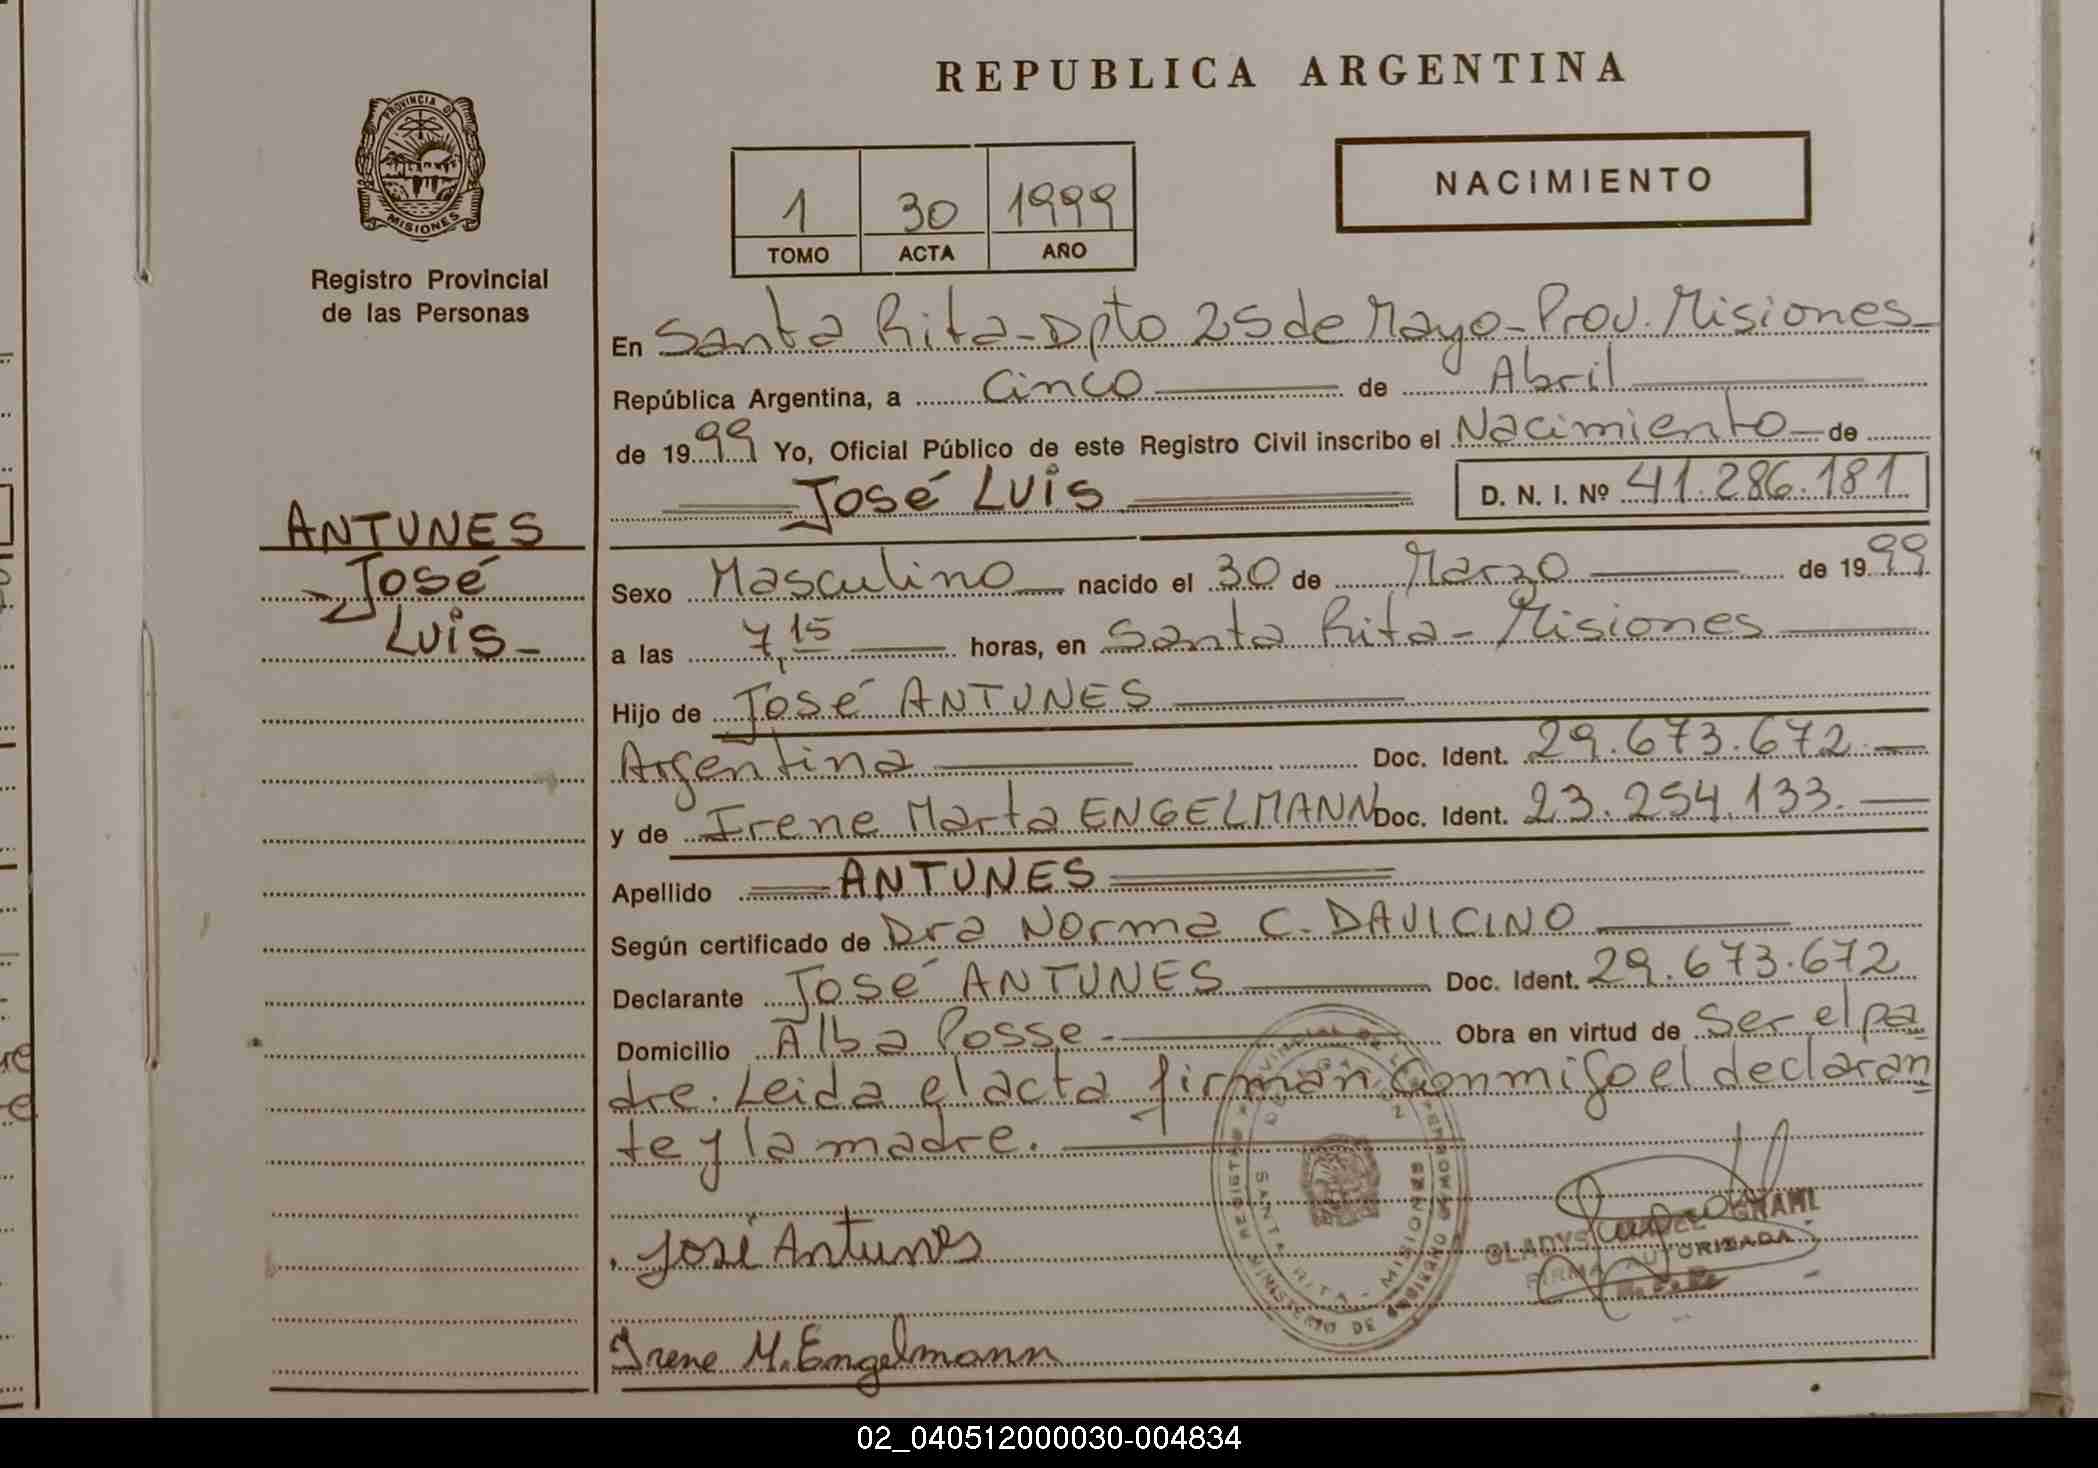 REPUBLICA ARGENTINA
PROVINCIA DE
MISIONES
Registro Provincial
de las Personas
1 30 1999
TOMO ACTA AÑO
NACIMIENTO
En Santa Rita-Dpto 25 de Mayo-Prov. Misiones
República Argentina, a Cinco de Abril
de 1999 Yo, Oficial Público de este Registro Civil inscribo el Nacimiento de
José Luis D. N. I. Nº 41.286.181
ANTUNES
José
Luis-
Sexo Masculino nacido el 30 de Marzo de 1999
a las 7,15 horas, en Santa Rita-Misiones
Hijo de José ANTUNES
Argentina Doc. Ident. 29.673.672
y de Irene Marta ENGELMANN Doc. Ident. 23.254.133.
Apellido ANTUNES
Según certificado de Dra Norma C. DAVICINO
Declarante José ANTUNES Doc. Ident. 29.673.672
Domicilio Alba Posse- Obra en virtud de ser el pa
dre. Leida el acta firman conmigo el declaran
te y la madre.
José Antunes
Irene M. Engelmann
SANTA RITA - MISIONES
MINISTERIO DE GOBIERNO
GLADYS
FIRMA AUTORIZADA
02_040512000030-004834